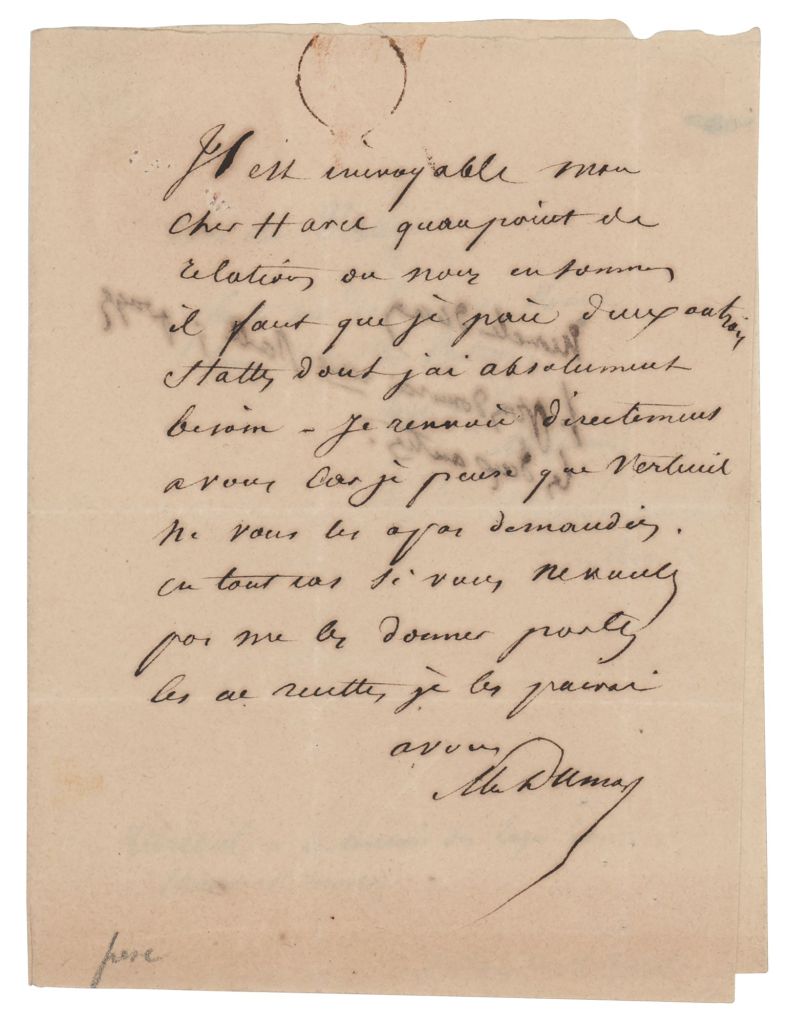 Il est incroyable mon
cher Harel quau point de
relations ou nous en sommes
il faut que je paie deux ou trois
stalles dont j'ai absolument
besoin – Je renvoie directement
a vous car je pense que Verteuil
ne vous les a pas demandées.
en tout cas si vous ne voulez
pas me les donner portez
les en recettes je les paierai
a vous
Alex Dumas
pere